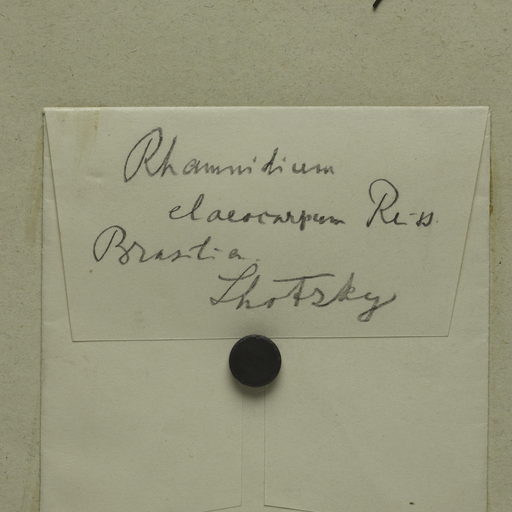 Rhamnidium
elaeocarpum Reiss.
Brasilia.
Lhotzky